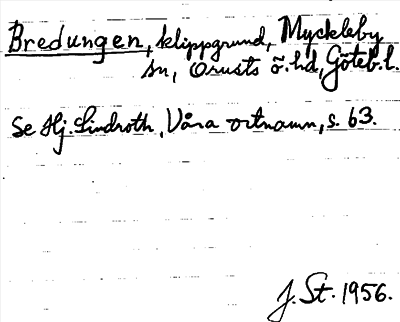 Bredungen, klippgrund, Myckleby
sn, Orusts ö. hd, Göteb. l.
Se Hj. Lindroth, Våra ortnamn, s. 63.
J. St. 1956.